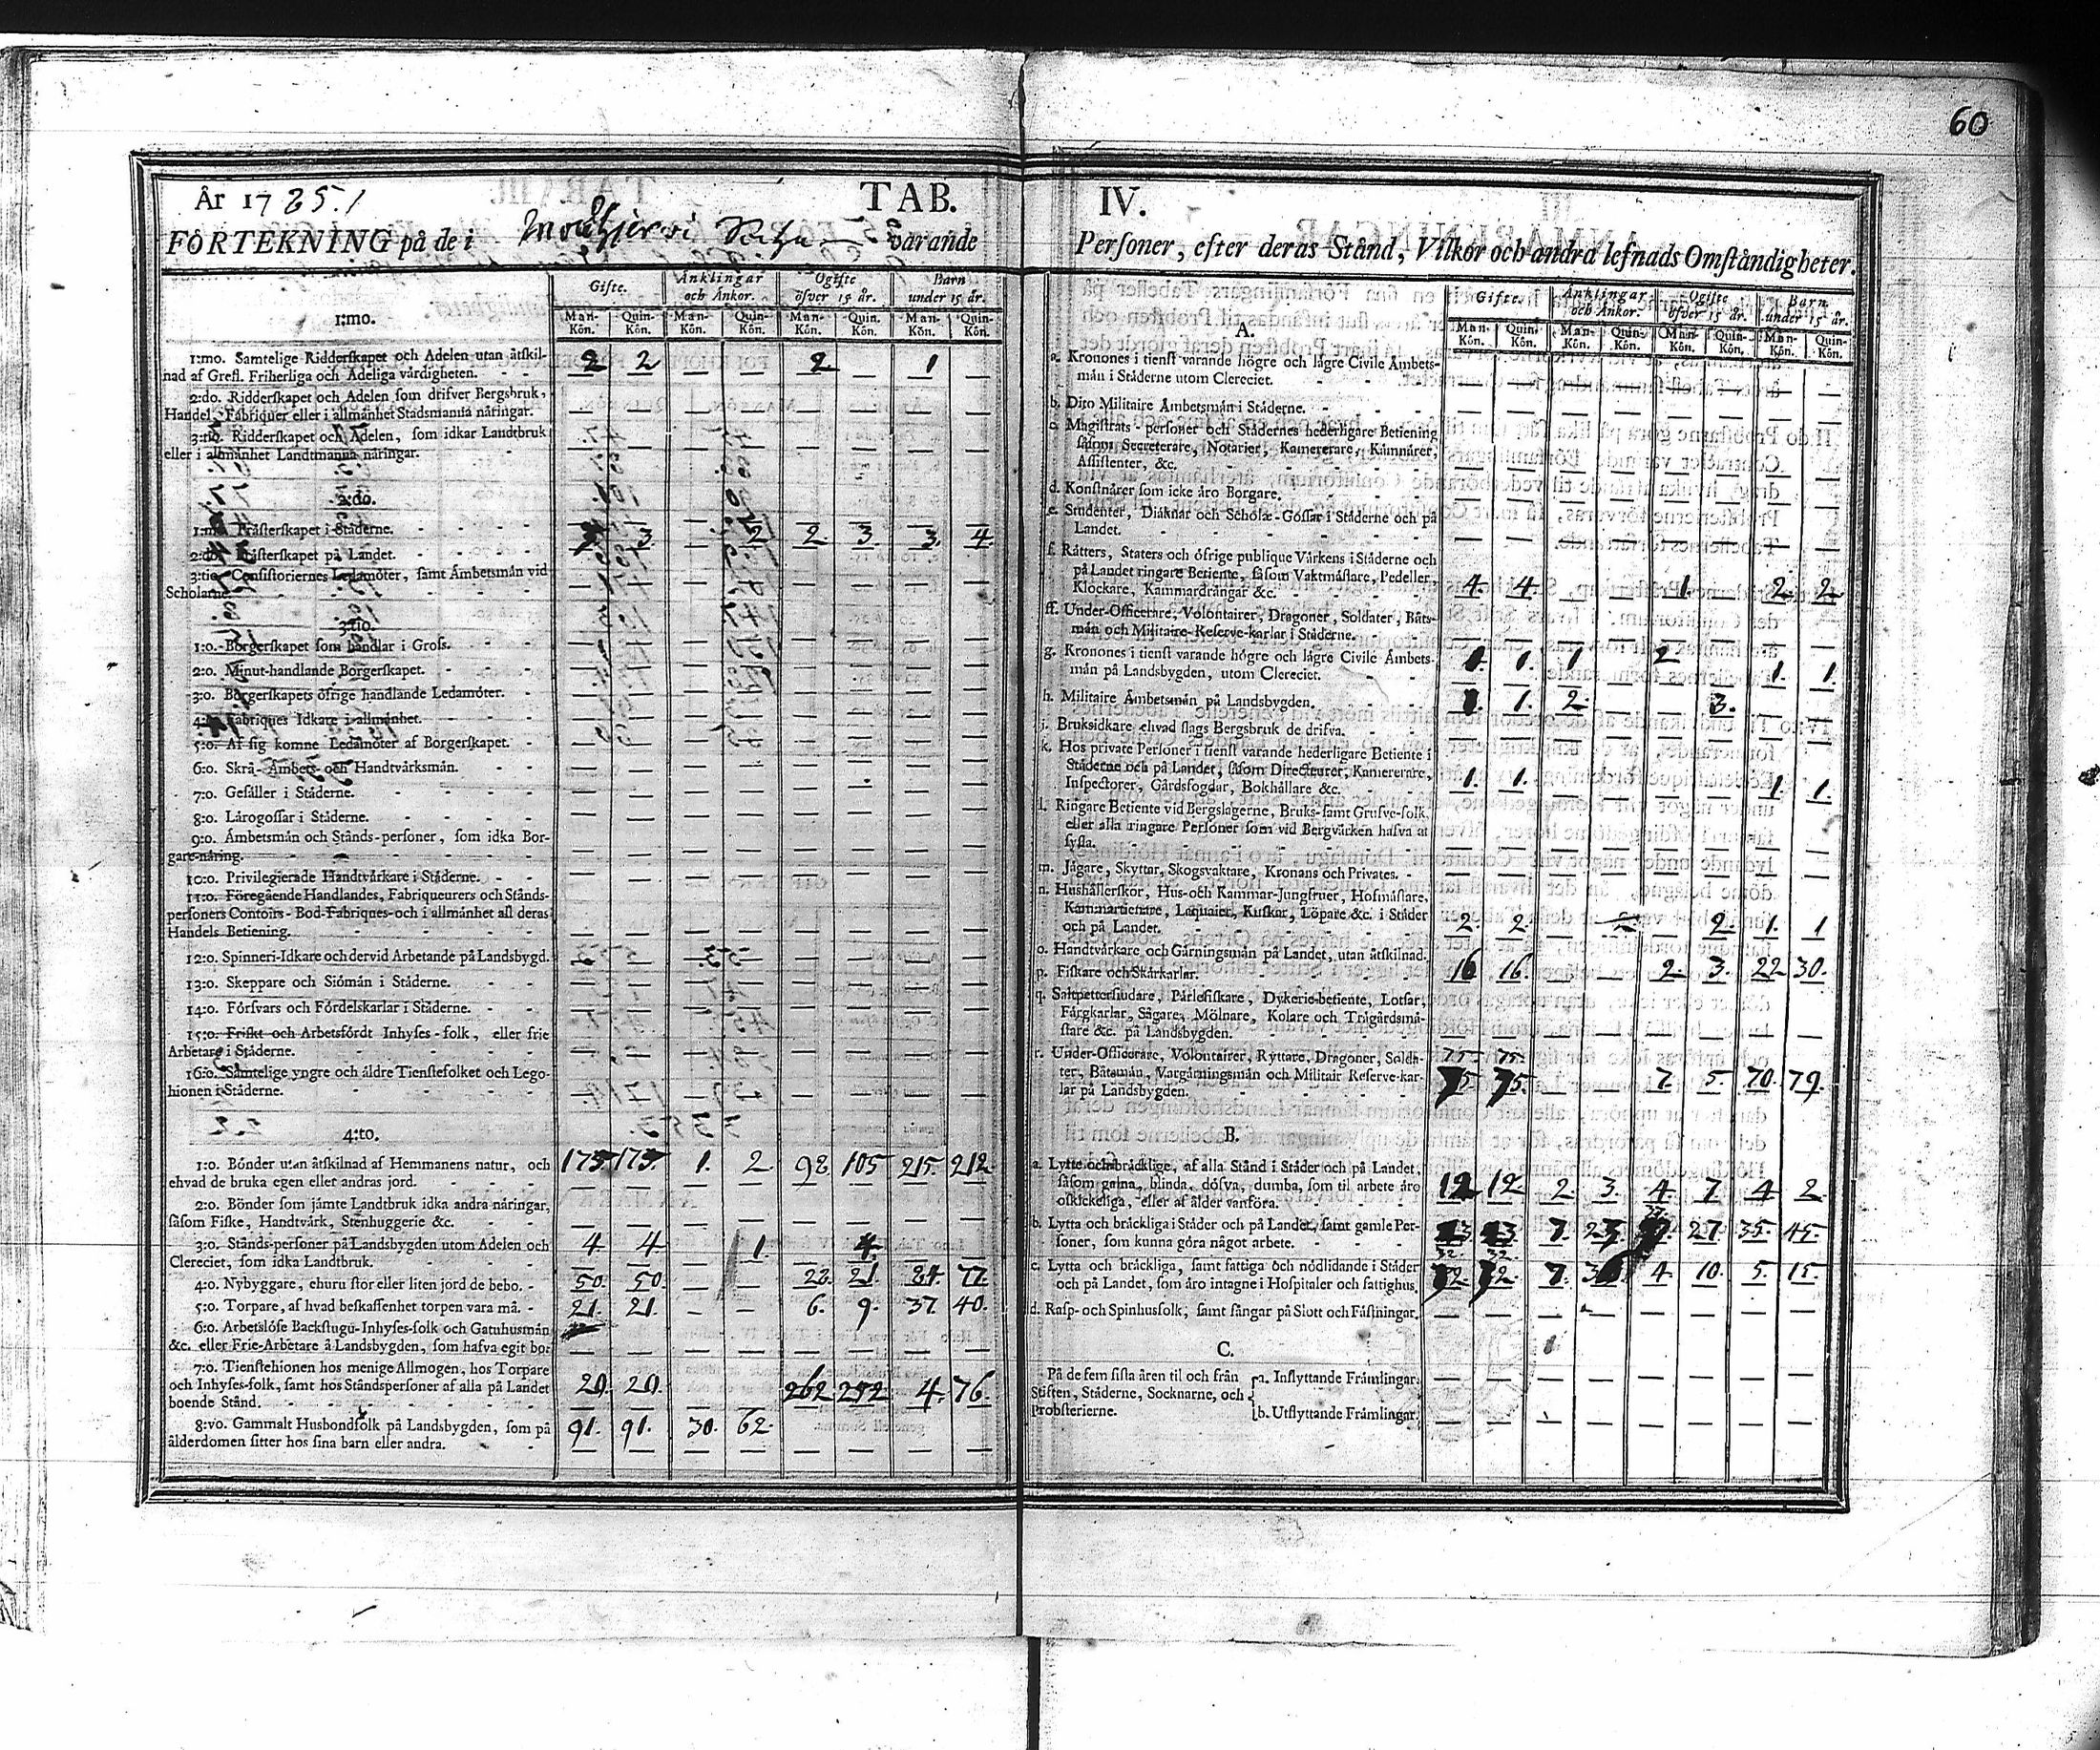 60
År 1785.
TAB. IV.
FÖRTEKNING på de i Sokn varande Personer, efter deras Stånd, Vilkor och andra lefnads Omståndigheter.
Gifte. Änklingar och Änkor. Ogifte öfver 15 år. Barn under 15 år.
Man-Kön. Quin-Kön. Man-Kön. Quin-Kön. Man-Kön. Quin. Kön. Man-Kön. Quin-Kön.
1:mo.
1:mo. Samtelige Ridderskapet och Adelen utan åtskil-
nad af Grefl. Friherliga och Adeliga vårdigheten. 2 2 — — 2 — 1 —
2:do. Ridderskapet och Adelen som drifver Bergsbruk,
Handel, Fabriquer eller i allmånhet Stadsmanna nåringar. — — — — — — — —
3:tio. Ridderskapet och Adelen, som idkar Landtbruk
eller i allmånhet Landtmanna nåringar. — — — — — — — —
2:do.
1:mo. Pråsterskapet i Ståderne. 3 — 2 2 3 3. 4.
2:do. Pråsterskapet på Landet. — — — — — — — —
3:tio. Consistoriernes Ledamöter, samt Ämbetsmån vid
Scholarne. — — — — — — — —
3:tio.
1:o. Borgerskapet som handlar i Gross. — — — — — — — —
2:o. Minut-handlande Borgerskapet. — — — — — — — —
3:o. Borgerskapets öfrige handlande Ledamöter. — — — — — — — —
4:o. Fabriques Idkare i allmånhet. — — — — — — — —
5:o. Af sig komne Ledamöter af Borgerskapet. — — — — — — — —
6:o. Skrå-Ämbets- och Handtvårksmån. — — — — — — — —
7:o. Gesåller i Ståderne. — — — — — — — —
8:o. Lårogossar i Ståderne. — — — — — — — —
9:o. Ämbetsmån och Stånds-personer, som idka Bor-
gare-nåring. — — — — — — — —
10:o. Privilegierade Handtvårkare i Ståderne. — — — — — — — —
11:o. Föregående Handlandes, Fabriqueurers och Stånds-
personers Contoirs- Bod-Fabriques- och i allmånhet all deras
Handels Betiening. — — — — — — — —
12:o. Spinneri-Idkare och dervid Arbetande på Landsbygd. — — — — — — — —
13:o. Skeppare och Siömån i Ståderne. — — — — — — — —
14:o. Försvars och Fördelskarlar i Ståderne. — — — — — — — —
15:o. Friskt och Arbetsfördt Inhyses-folk, eller frie
Arbetare i Ståderne. — — — — — — — —
16:o. Samtelige yngre och åldre Tienstefolket och Lego-
hionen i Ståderne. — — — — — — — —
4:to.
1:o. Bönder utan åtskilnad af Hemmanens natur, och
ehvad de bruka egen eller andras jord. 175 175. 1. 2 98 105 215. 212.
2:o. Bönder som jåmte Landtbruk idka andra nåringar,
såsom Fiske, Handtvårk, Stenhuggerie &c. — — — — — — — —
3:o. Stånds-personer på Landsbygden utom Adelen och
Clereciet, som idka Landtbruk. 4 4 1 4.
4:o. Nybyggare, ehuru stor eller liten jord de bebo. 50. 50. — — 22. 21. 77.
5:o. Torpare, af hvad beskaffenhet torpen vara må. 21. 21. — — 6. 9. 37. 40.
6:o. Arbetslöse Backstugu-Inhyses-folk och Gatuhusmån
&c. eller Frie-Arbetare å Landsbygden, som hafva egit bo: — — — — — — — —
7:o. Tienstehionen hos menige Allmogen, hos Torpare
och Inhyses-folk, samt hos Ståndspersoner af alla på Landet
boende Stånd. 20. 20. 262. 252 4. 76.
8:vo. Gammalt Husbondfolk på Landsbygden, som på
ålderdomen sitter hos sina barn eller andra. 91. 91. 30. 62. — — — —
Gifte. Änklingar och Änkor. Ogifte öfver 15 år. Barn under 15 år.
Man-Kön. Quin-Kön. Man-Kön. Quin-Kön. Man-Kön. Quin-Kön. Man-Kön. Quin-Kön.
A.
a. Kronones i tienst varande högre och lågre Civile Ämbets-
mån i Ståderne utom Clereciet. — — — — — — — —
b. Dito Militaire Ämbetsmån i Ståderne. — — — — — — — —
c. Magistrats-personer och Stådernes hederligare Betiening
såsom Secreterare, Notarier, Kamererare, Kåmnårer,
Assistenter, &c. — — — — — — — —
d. Konstnårer som icke åro Borgare. — — — — — — — —
e. Studenter, Diåknar och Scholæ-Gossar i Ståderne och på
Landet. — — — — — — — —
f. Råtters, Staters och öfrige publique Vårkens i Ståderne och
på Landet ringare Betiente, såsom Vaktmåstare, Pedeller,
Klockare, Kammardrångar &c. 4. 4. — — 1. — 2 2
ff. Under-Officerare, Volontairer, Dragoner, Soldater, Båts-
mån och Militaire-Reserve-karlar i Ståderne. — — — — — — — —
g. Kronones i tienst varande högre och lågre Civile Ämbets-
mån på Landsbygden, utom Clereciet. 1. 1. 1 — 2 — 1. 1.
h. Militaire Ämbetsmån på Landsbygden. 1. 1. 2. — — 3. — —
i. Bruksidkare ehvad slags Bergsbruk de drifva. — — — — — — — —
k. Hos private Personer i tienst varande hederligare Betiente i
Ståderne och på Landet, såsom Directeurer, Kamererare,
Inspectorer, Gårdsfogdar, Bokhållare &c. 1. 1. — — — — 1. 1.
l. Ringare Betiente vid Bergslagerne, Bruks-samt Grufve-folk,
eller alla ringare Personer som vid Bergvårken hafva at
sysla. — — — — — — — —
m. Jågare, Skyttar, Skogsvaktare, Kronans och Privates. — — — — — — — —
n. Hushållerskor, Hus-och Kammar-Jungfruer, Hofmåstare,
Kammartienare, Laquaier, Kuskar, Löpare &c. i Ståder
och på Landet. 2. 2. — — 2. 1. 1
o. Handtvårkare och Gårningsmån på Landet, utan åtskilnad. 16 16. — — 2 3. 22 30.
p. Fiskare och Skårkarlar. — — — — — — — —
q. Saltpettersiudare, Pårlefiskare, Dykerie-betiente, Lotsar,
Fårgkarlar, Sågare, Mölnare, Kolare och Trågårdsmå-
stare &c. på Landsbygden. — — — — — — — —
r. Under-Officerare, Volontairer, Ryttare, Dragoner, Solda-
ter, Båtsmån, Vargårningsmån och Militair Reserve-kar-
lar på Landsbygden. 75 75. — — 7. 5. 70. 79.
B.
a. Lytte och bråcklige, af alla Stånd i Ståder och på Landet,
såsom galna, blinda, döfva, dumba, som til arbete åro
oskickeliga, eller af ålder vanföra. 12 12 2 3. 4. 7. 4 2.
b. Lytta och bråckliga i Ståder och på Landet, samt gamle Per-
soner, som kunna göra något arbete. 7. 27 35. 45.
c. Lytta och bråckliga, samt fattiga och nödlidande i Ståder
och på Landet, som åro intagne i Hospitaler och fattighus. 32 32. 7. 4 10. 5. 15.
d. Rasp- och Spinhusfolk, samt fångar på Slott och Fåstningar. — — — — — — — —
C.
På de fem sista åren til och från
Stiften, Ståderne, Socknarne, och
Probsterierne.
a. Inflyttande Fråmlingar. — — — — — — — —
b. Utflyttande Fråmlingar. — — — — — — — —